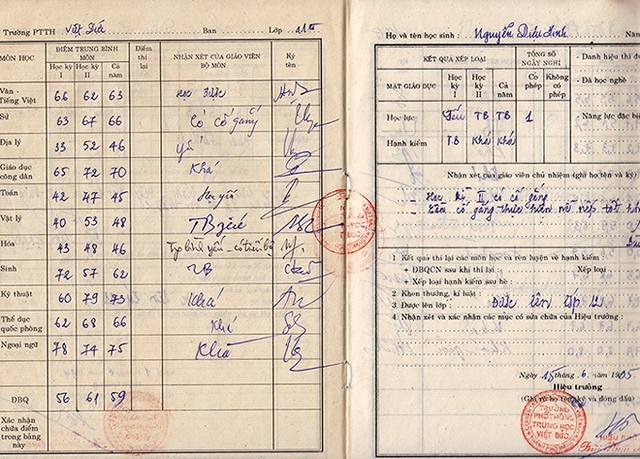 Trường PTTH Việt Đức Ban Lớp 11
MÔN HỌC
ĐIỂM TRUNG BÌNH MÔN
Học kỳ I
Học kỳ II
Cả năm
Điểm thi lại
NHẬN XÉT CỦA GIÁO VIÊN BỘ MÔN
Ký tên
Văn - Tiếng Việt 66 62 63 Học được
Sử 63 67 66 Có cố gắng
Địa lý 33 52 46 Yếu
Giáo dục công dân 65 72 70 Khá
Toán 42 47 45 Hơi yếu
Vật lý 40 53 48 TB yếu
Hóa 43 48 46
Sinh 72 57 62 TB
Kỹ thuật 60 79 73 Khá
Thể dục quốc phòng 62 68 66 Khá
Ngoại ngữ 78 74 75 Khá
ĐBQ 56 61 59
Xác nhận chữa điểm trong bảng này
Họ và tên học sinh : Nguyễn Diệu Linh
KẾT QUẢ XẾP LOẠI
TỔNG SỐ NGÀY NGHỈ
MẶT GIÁO DỤC
Học kỳ I
Học kỳ II
Cả năm
Có phép
Không có phép
Học lực Yếu TB TB 1
Hạnh kiểm TB Khá Khá
- Danh hiệu thi đ
- Đã học nghề
- Năng lực đặc biệ
Nhận xét của giáo viên chủ nhiệm (ghi họ tên và ký)
- Học kỳ II có cố gắng
- Cần cố gắng thực hiện nề nếp tốt
1 Kết quả thi lại các môn học và rèn luyện về hạnh kiểm :
+ ĐBQCN sau khi thi lại : Xếp loại
+ Xếp loại hạnh kiểm sau hè :
2 Khen thưởng, kỉ luật :
3 Được lên lớp : Được lên lớp 12
4 Nhận xét và xác nhận các mục có sửa chữa của Hiệu trưởng :
Ngày 15 tháng 6 năm 1995
Hiệu trưởng
(Ghi rõ họ tên ký và đóng dấu)
TRƯỜNG
PHỔ THÔNG
TRUNG HỌC
VIỆT ĐỨC